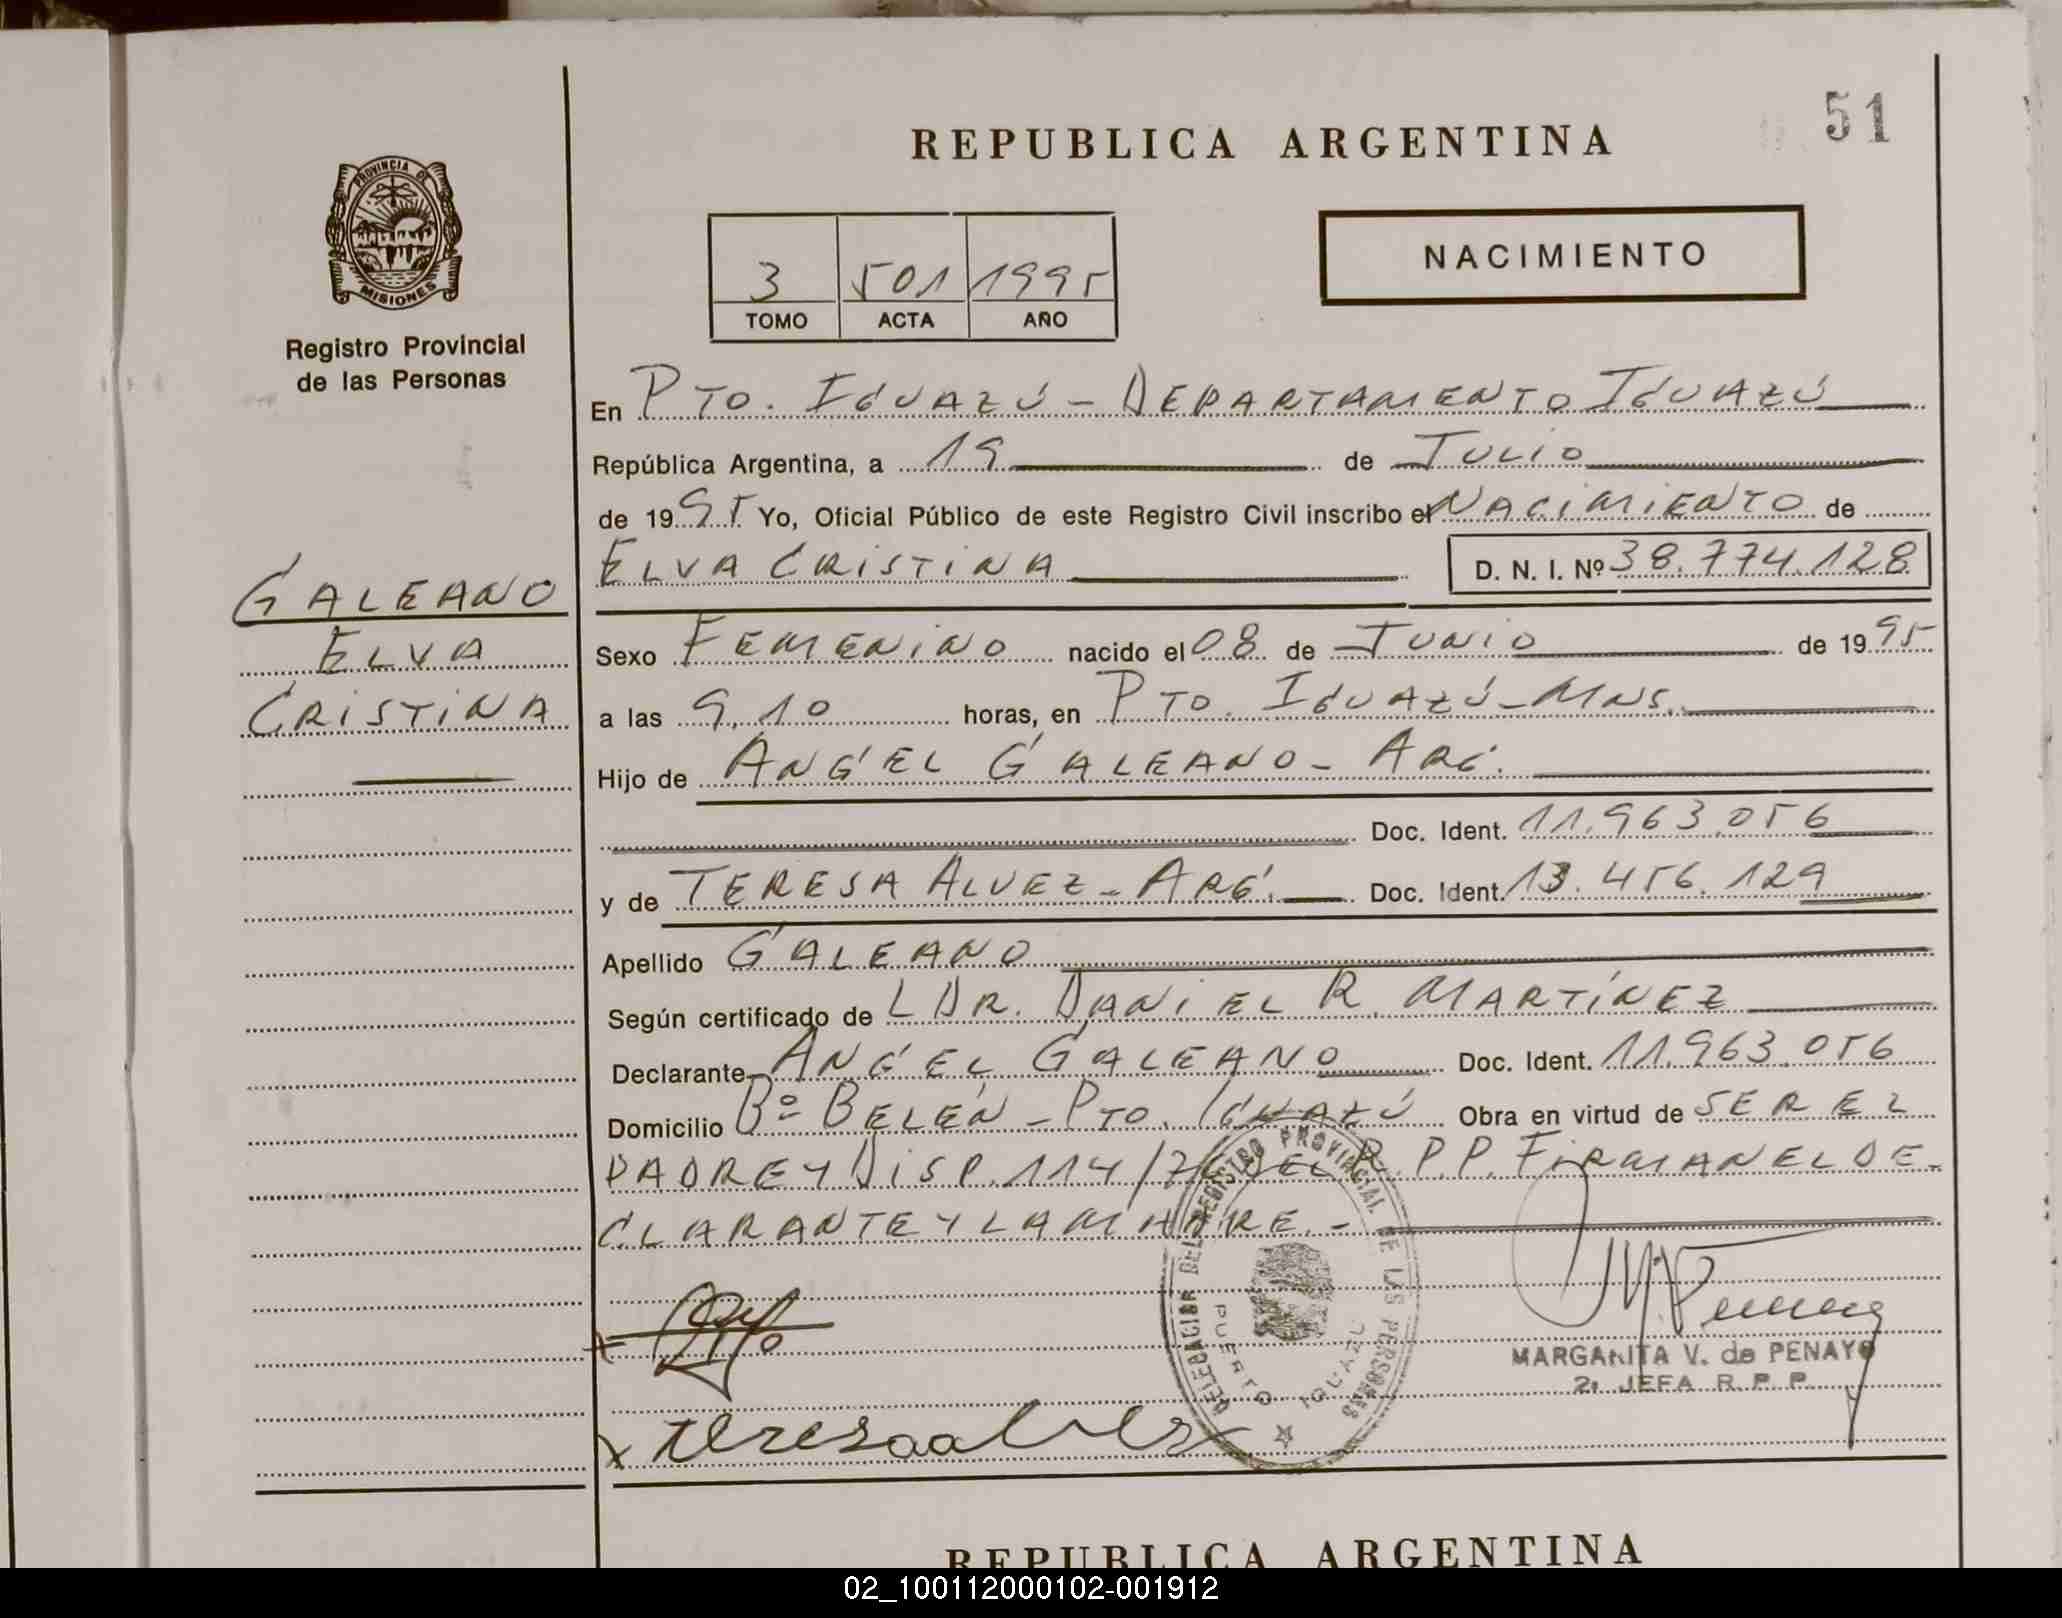 51
REPUBLICA ARGENTINA
PROVINCIA DE
MISIONES
Registro Provincial
de las Personas
NACIMIENTO
3 501 1995
TOMO ACTA AÑO
En PTO. IGUAZÚ - DEPARTAMENTO IGUAZÚ
República Argentina, a 19 de JULIO
de 1995 Yo, Oficial Público de este Registro Civil inscribo el NACIMIENTO de
ELVA CRISTINA D. N. I. Nº 38.774.128
GALEANO
ELVA
CRISTINA
Sexo FEMENINO nacido el 08 de JUNIO de 1995
a las 9.10 horas, en PTO. IGUAZÚ - MNS.
Hijo de ANGEL GALEANO - ARG.
Doc. Ident. 11.963.056
y de TERESA ALVEZ - ARG. Doc. Ident. 13.456.129
Apellido GALEANO
Según certificado de L DR. DANIEL R. MARTÍNEZ
Declarante ANGEL GALEANO Doc. Ident. 11.963.056
Domicilio Bº BELÉN - PTO. IGUAZÚ Obra en virtud de SER EL
PADRE Y DISP. 114/7 DEL R.P.P. FIRMAN EL DE-
CLARANTE Y LA MADRE. -
DELEGACION DEL REGISTRO PROVINCIAL DE LAS PERSONAS
PUERTO IGUAZU
MARGARITA V. de PENAYO
2ª JEFA R. P. P.
x teresa alvez
REPUBLICA ARGENTINA
02_100112000102-001912